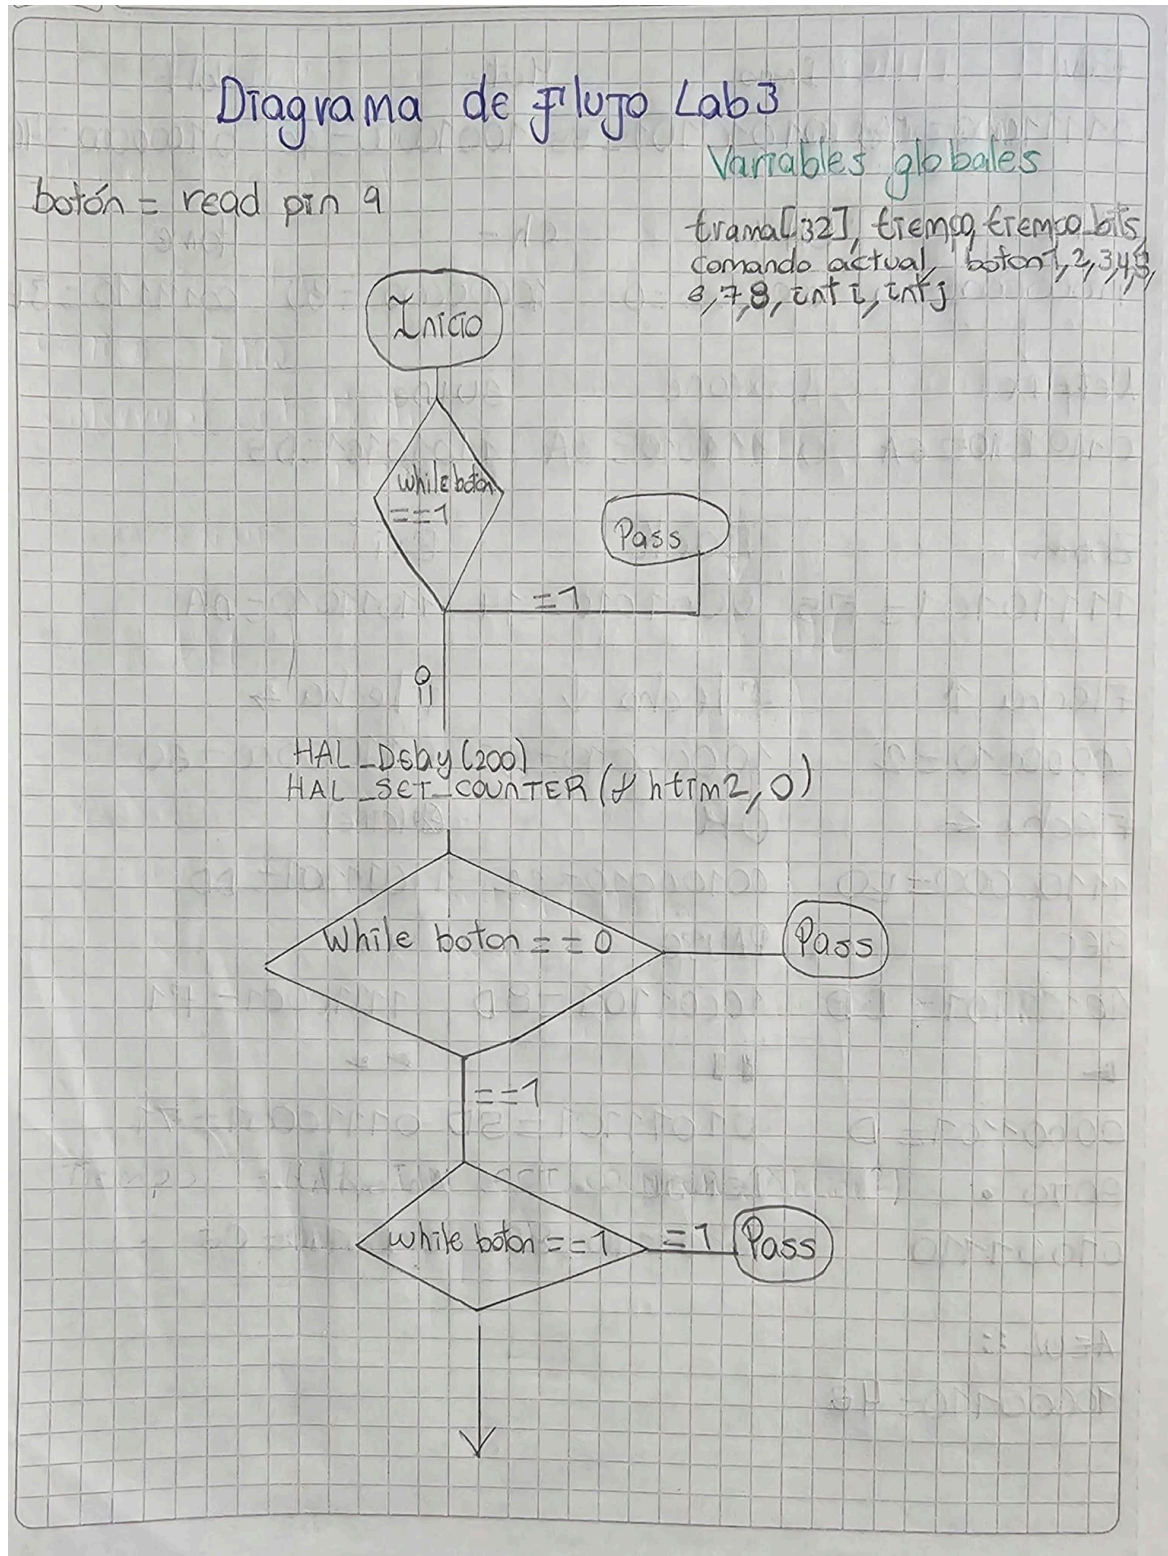 Diagrama de Flujo Lab3
Variables globales
botón = read pin 9
trama[32], tiempo, tiempo bits,
comando actual, boton1,2,3,4,5,
6,7,8, int i, int j
Inicio
while boton
==1
Pass
=1
HAL_Delay(200)
HAL_SET_COUNTER(&htim2,0)
While boton ==0
Pass
==1
while boton ==1
=1
Pass